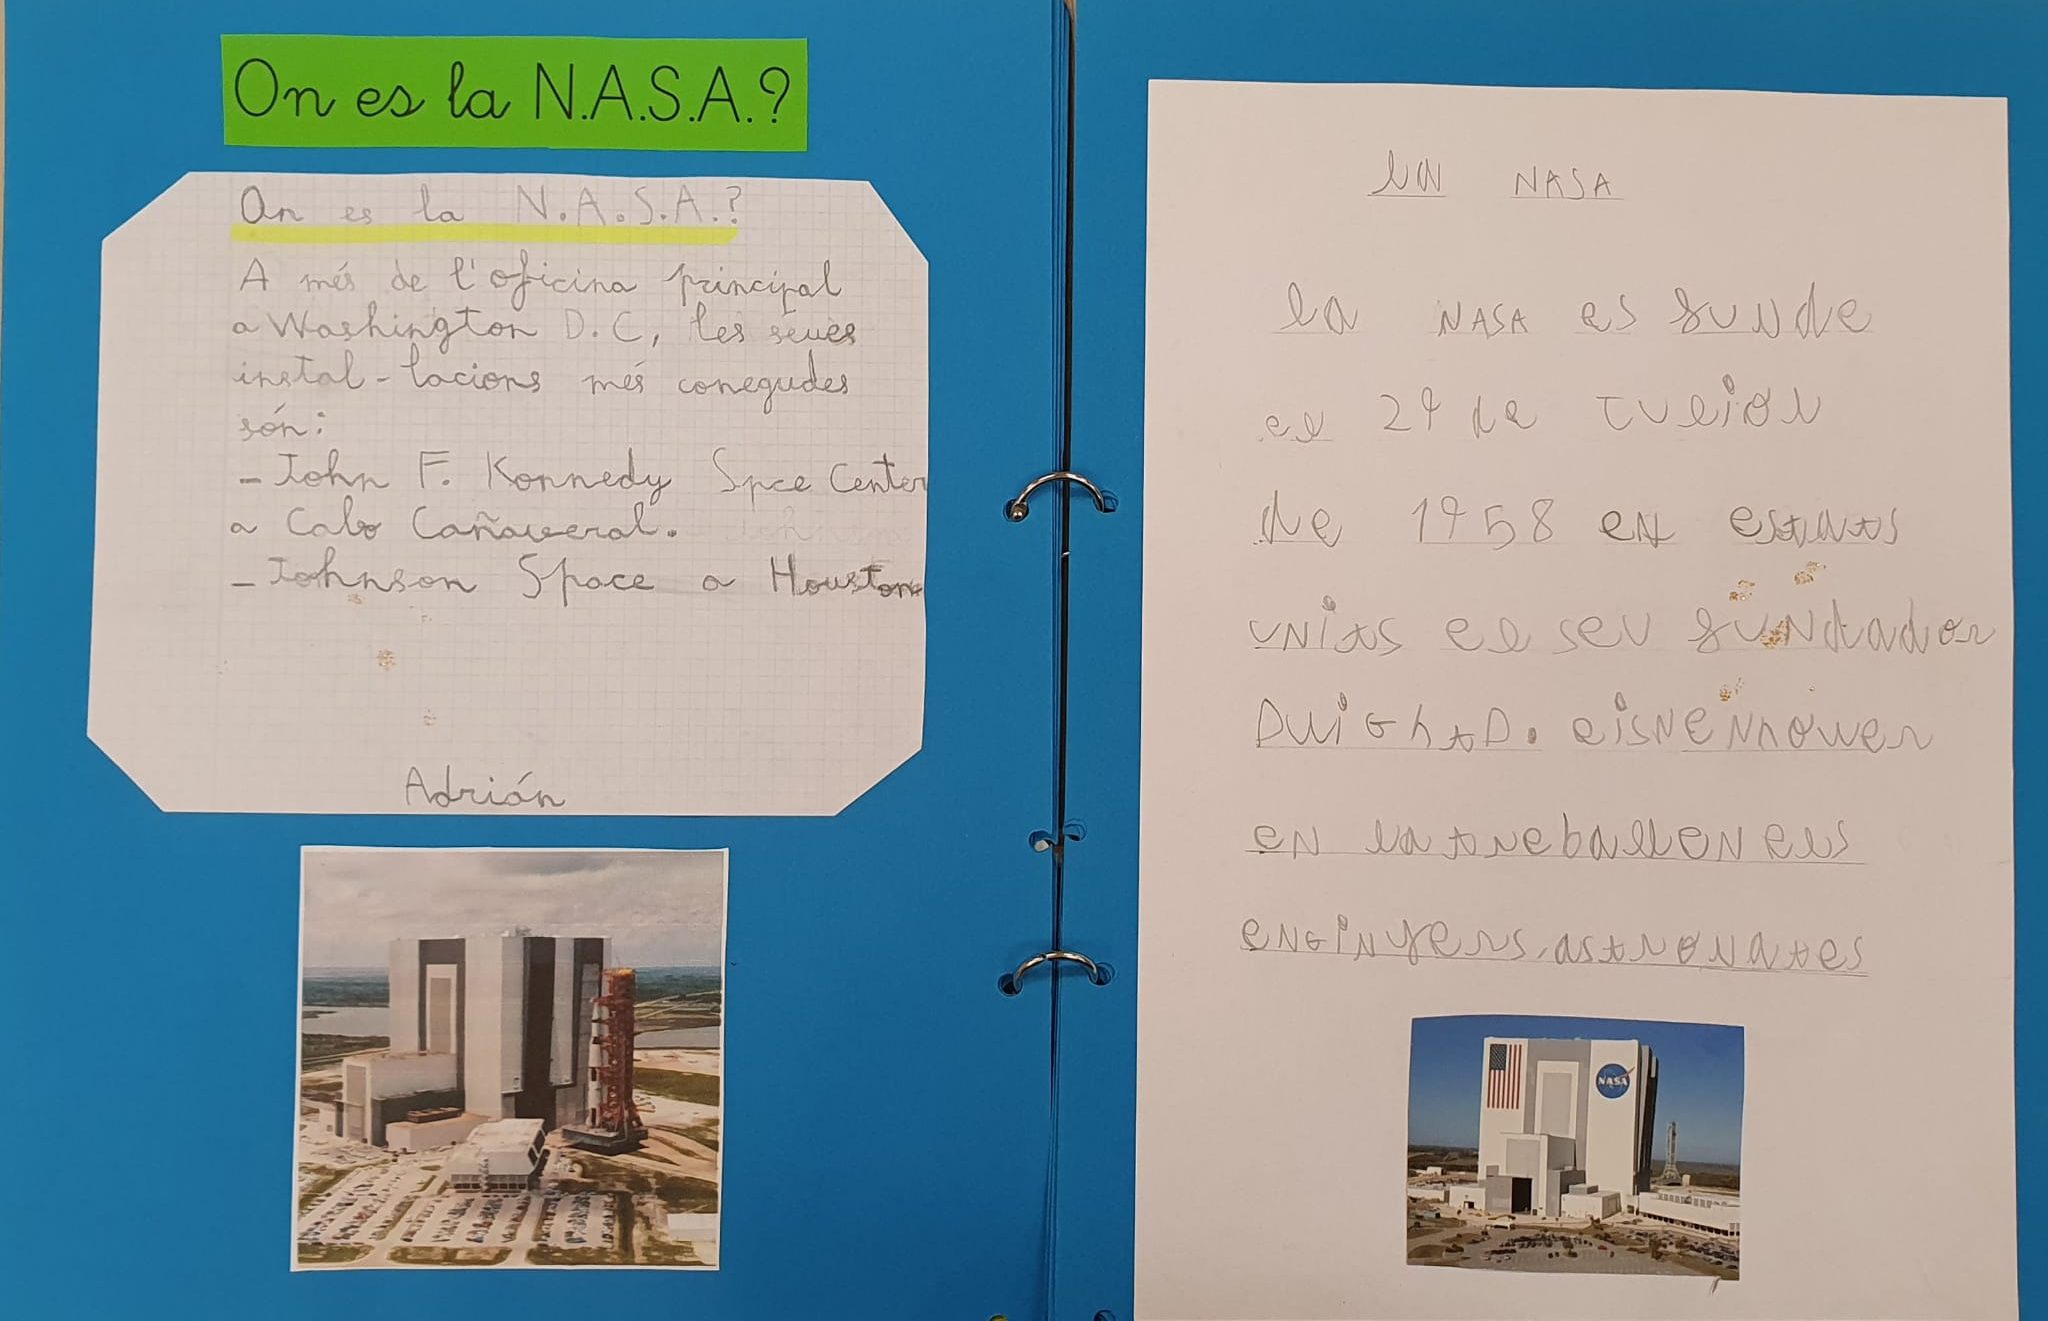 On es la N.A.S.A.?
On es la N.A.S.A.?
A més de l'oficina principal
a Washington D.C, les seues
instal-lacions més conegudes
són:
- John F. Konnedy Spce Center
a Cabo Cañaveral.
- Johnson Space a Houston
Adrián
la NASA
la NASA es funde
el 29 de Juliol
de 1958 en estats
units el seu fundador
Dwight D. eisneNhower
en la treballen els
enginyers, astronates
NASA